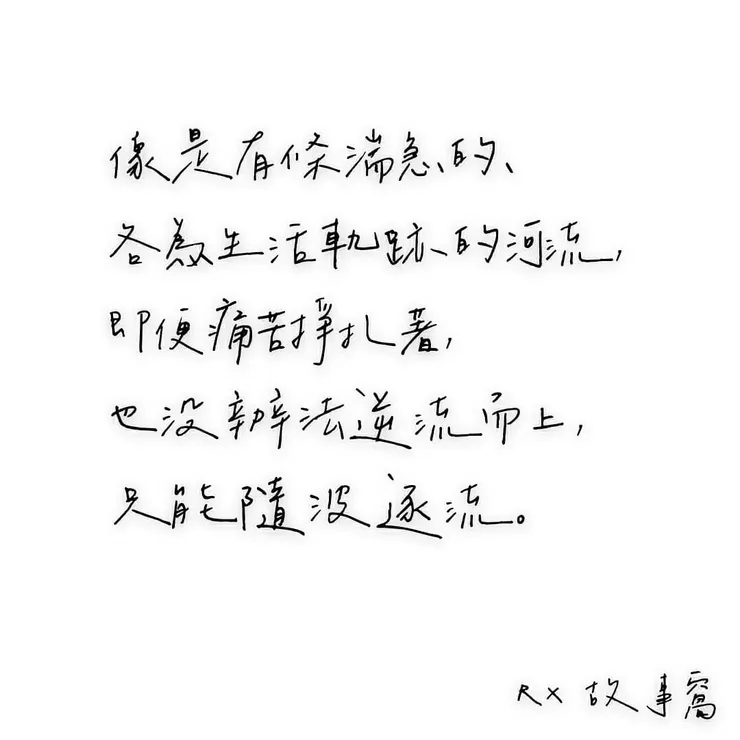 像是有條湍急的、
各為生活軌跡的河流,
即便痛苦掙扎著,
也沒辦法逆流而上,
只能隨波逐流。
RX 故事窩